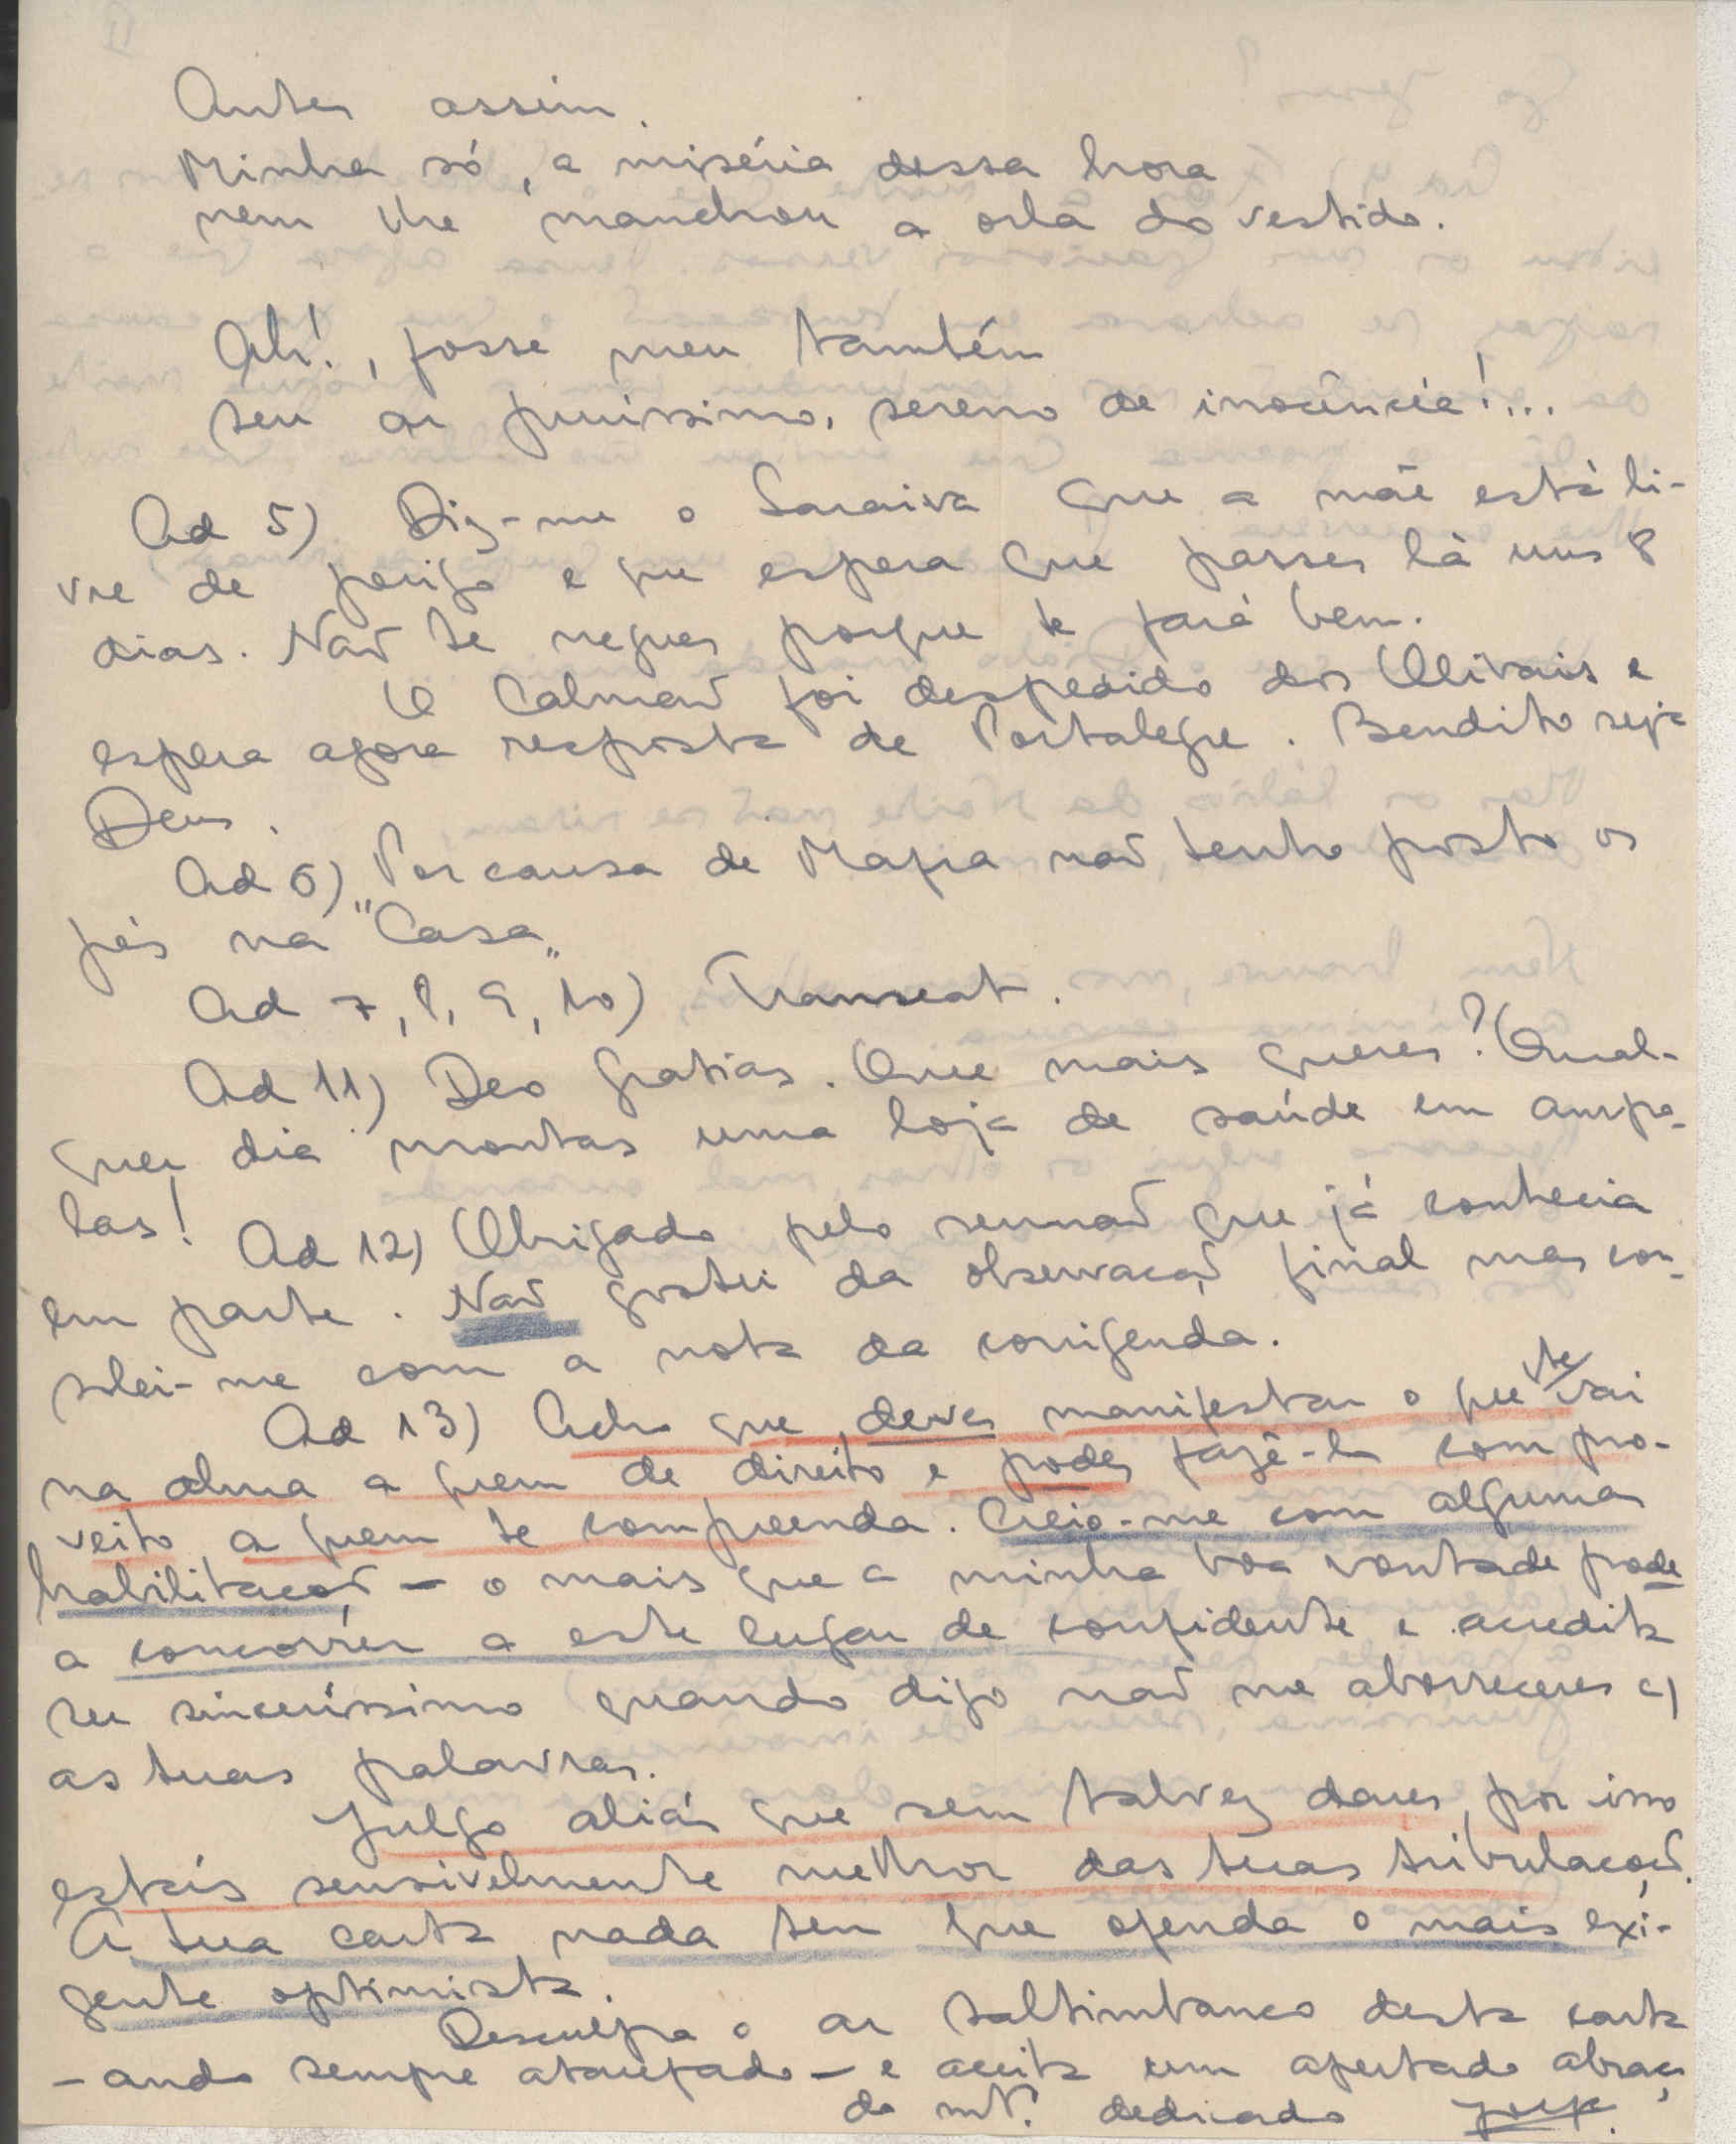 Antes assim.
Minha só, a miséria dessa hora
nem lhe manchou a orla do vestido.
Ah!, fosse meu também
seu ar puríssimo, sereno de inocência!...
Ad 5) Diz-me o Saraiva que a mãe está li-
vre de perigo e que espera que passes lá uns 8
dias. Não te negues porque te fará bem.
O Calmão foi despedido dos Olivais e
espera agora resposta de Portalegre. Bendito seja
Deus.
Ad 6) Por causa de Mafra não tenho posto os
pés na "Casa„
Ad 7, 8, 9, 10) Transeat.
Ad 11) Deo gratias. Que mais queres? Qual-
quer dia montas uma loja de saúde em ampo-
las!
Ad 12) Obrigado pelo sermão que já conhecia
em parte. Não gostei da observação final mas con-
solei-me com a nota da corrigenda.
Ad 13) Acho que deves manifestar o que te vai
na alma a quem de direito e podes fazê-lo com pro-
veito a quem te compreenda. Creio-me com alguma
habilitação - o mais que a minha boa vontade pode
a concorrer a este lugar de confidente e acredita
ser sinceríssimo quando digo não me aborreceres c/
as tuas palavras.
Julgo aliás que sem talvez dares por isso
estás sensivelmente melhor das tuas tribulações.
A tua carta nada tem que ofenda o mais exi-
gente optimista.
Desculpa o ar saltimbanco desta carta
- ando sempre atarefado - e aceita um apertado abraço
do mt. dedicado